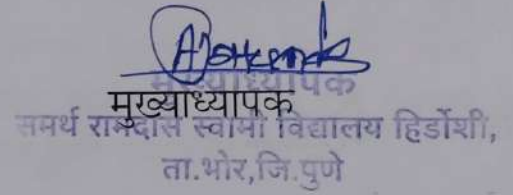 मुख्याध्यापक
मुख्याध्यापक
समर्थ रामदास स्वामी विद्यालय हिर्डोशी,
ता.भोर,जि.पुणे